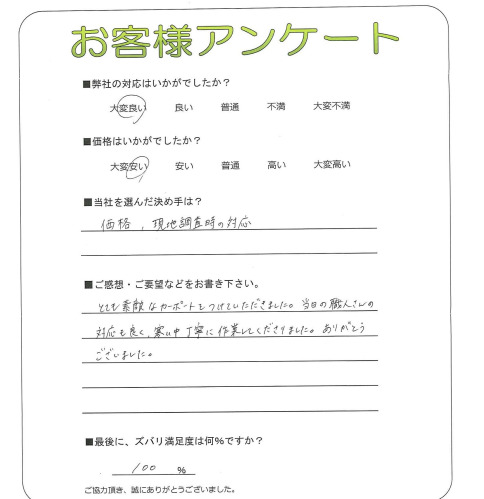 お客様アンケート
■弊社の対応はいかがでしたか？
大変良い 良い 普通 不満 大変不満
■価格はいかがでしたか？
大変安い 安い 普通 高い 大変高い
■当社を選んだ決め手は？
価格，現地調査時の対応
■ご感想・ご要望などをお書き下さい。
とても素敵なカーポートをつけていただきました。当日の職人さんの
対応も良く、寒い中丁寧に作業してくださりました。ありがとう
ございました。
■最後に、ズバリ満足度は何%ですか？
100 %
ご協力頂き、誠にありがとうございました。